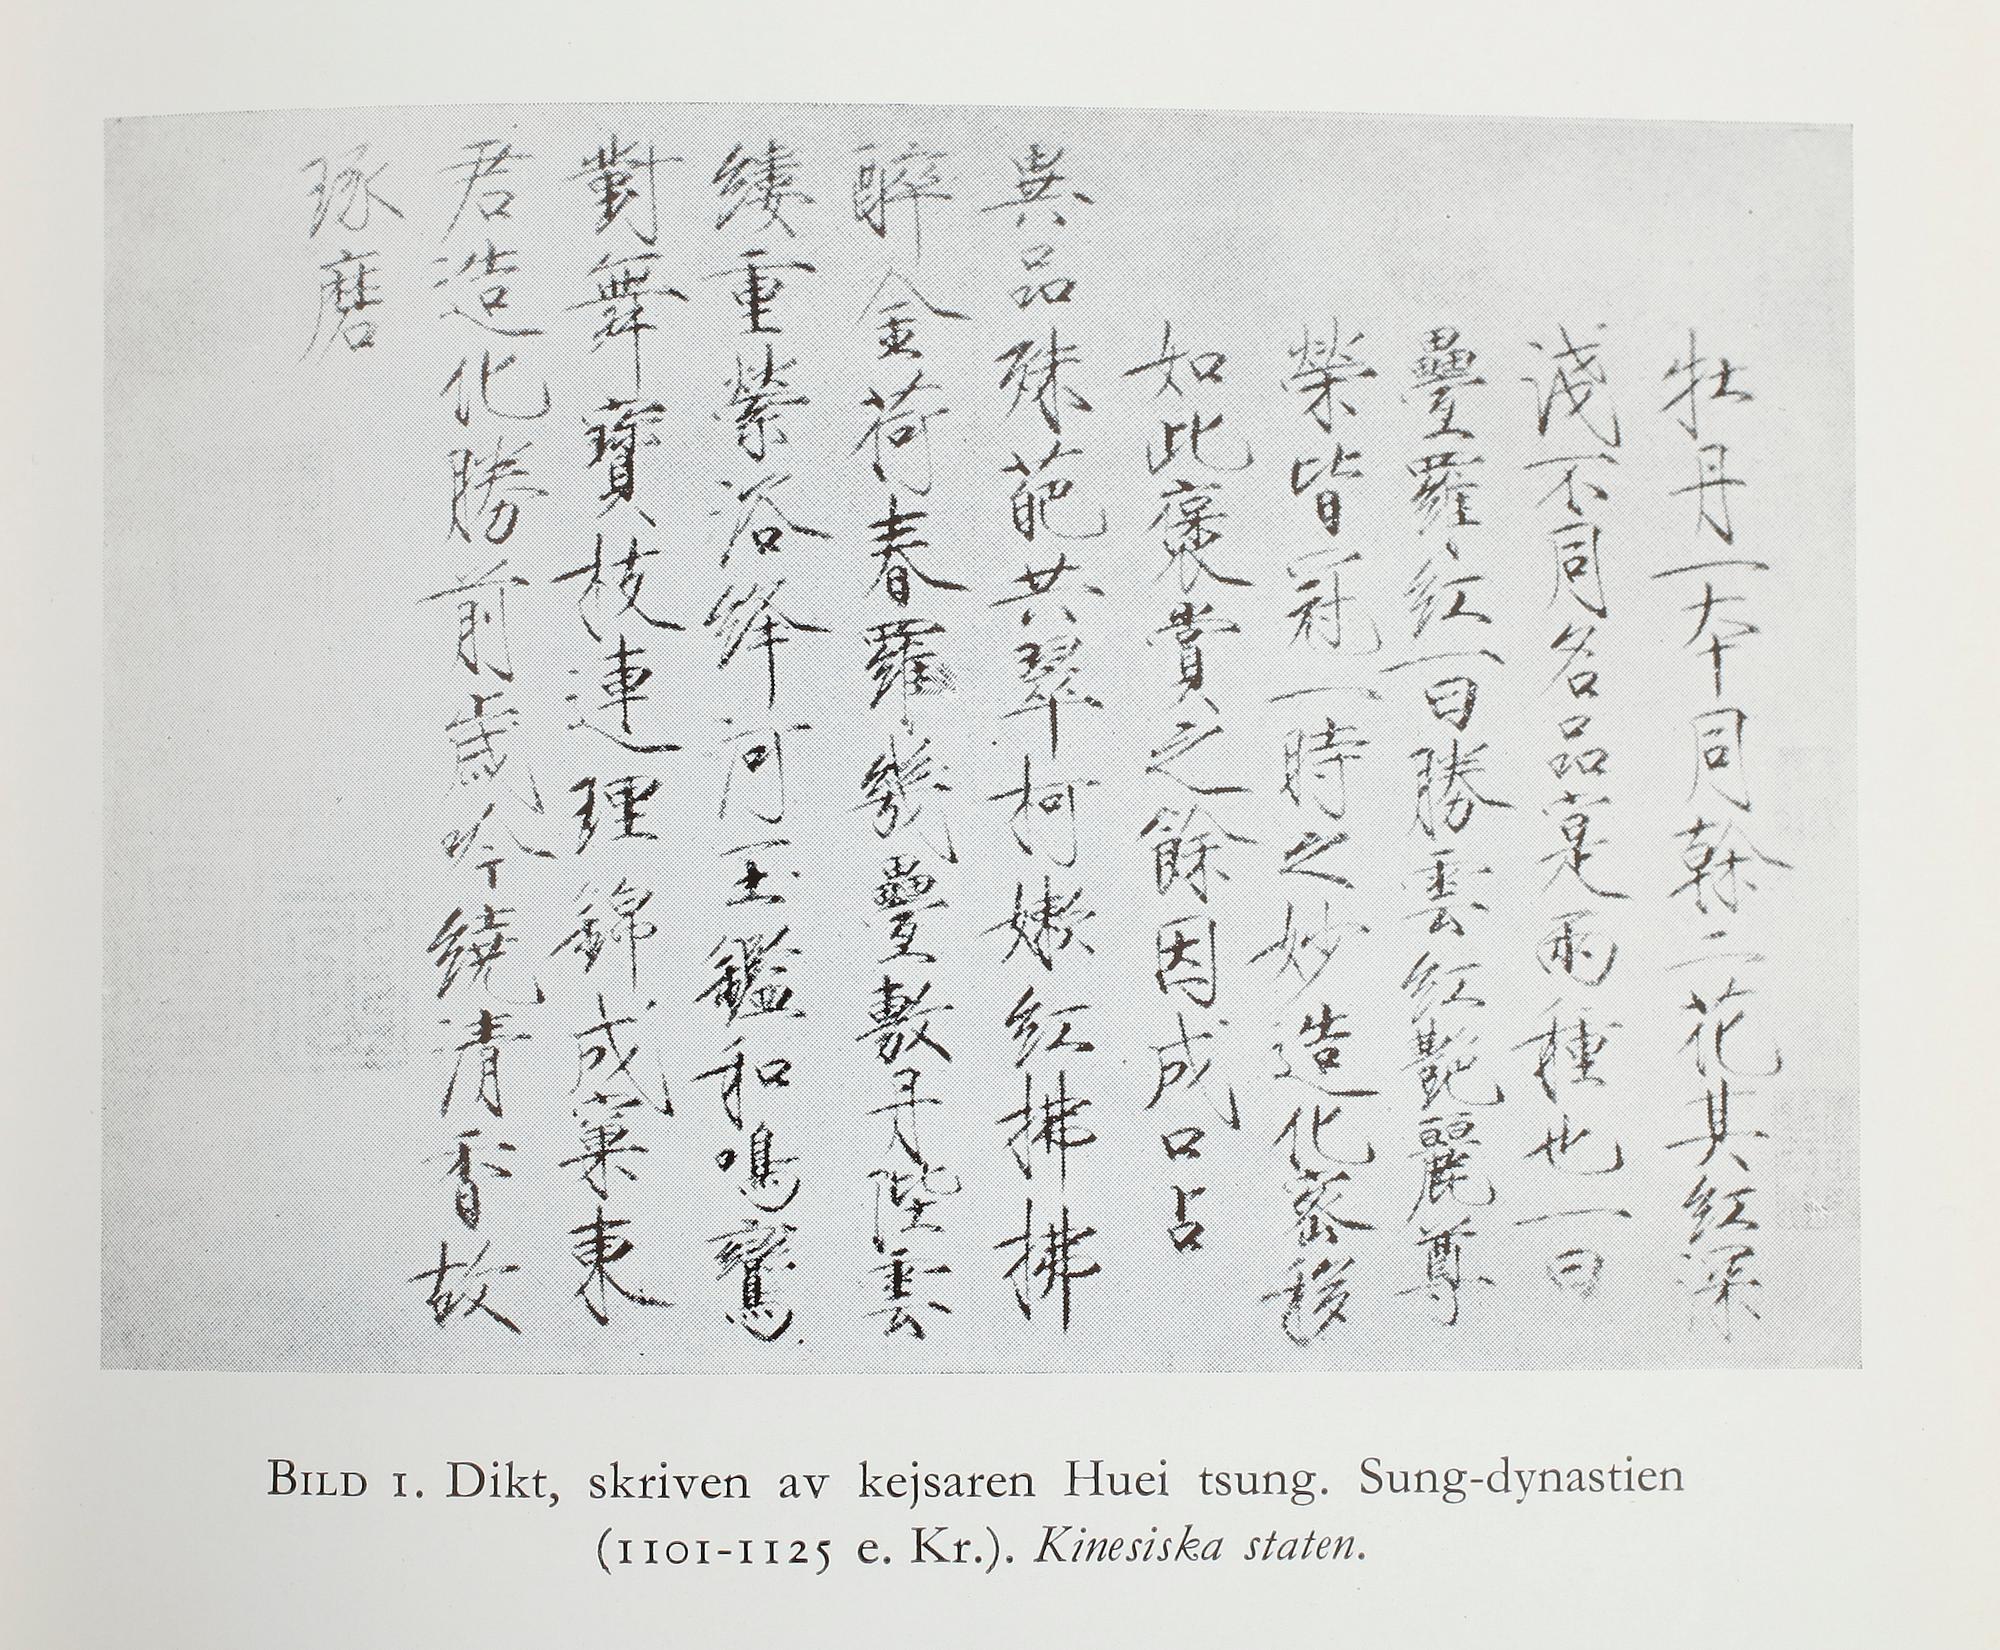 牡丹一本同榦二花其紅深
淺不同名品寔兩種也一曰
疊羅紅一曰勝雲紅艷麗尊
榮皆冠一時之妙造化密移
如此褒賞之餘因成口占
異品殊葩共翠柯嫩紅拂拂
醉金荷春羅幾疊敷丹陛雲
縷重縈浴絳河玉鑑和鳴鸞
對舞寶枝連理錦成窠東
君造化勝前歲吟繞清香故
琢磨
BILD 1. Dikt, skriven av kejsaren Huei tsung. Sung-dynastien
(1101-1125 e. Kr.). Kinesiska staten.